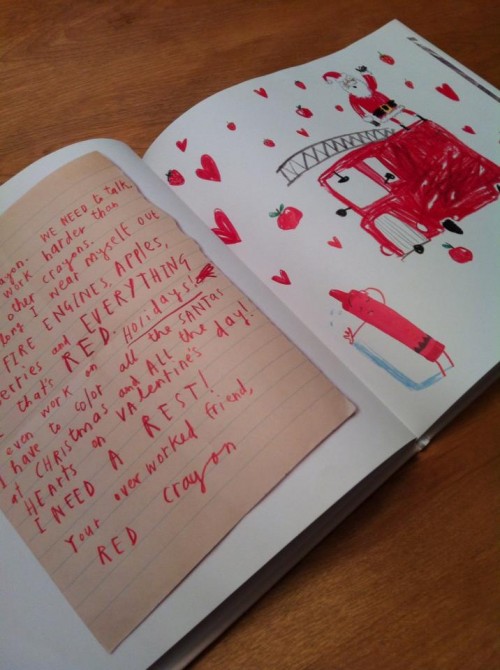 WE NEED to talk.
work harder than
other crayons.
I wear myself out
FIRE ENGINES, APPLES,
and EVERYTHING
that's RED.
even work on Holidays!
I have to color all the SANTAS
at CHRISTMAS and ALL the
HEARTS on VALENTINE'S day!
I NEED A REST!
Your overworked friend,
RED crayon